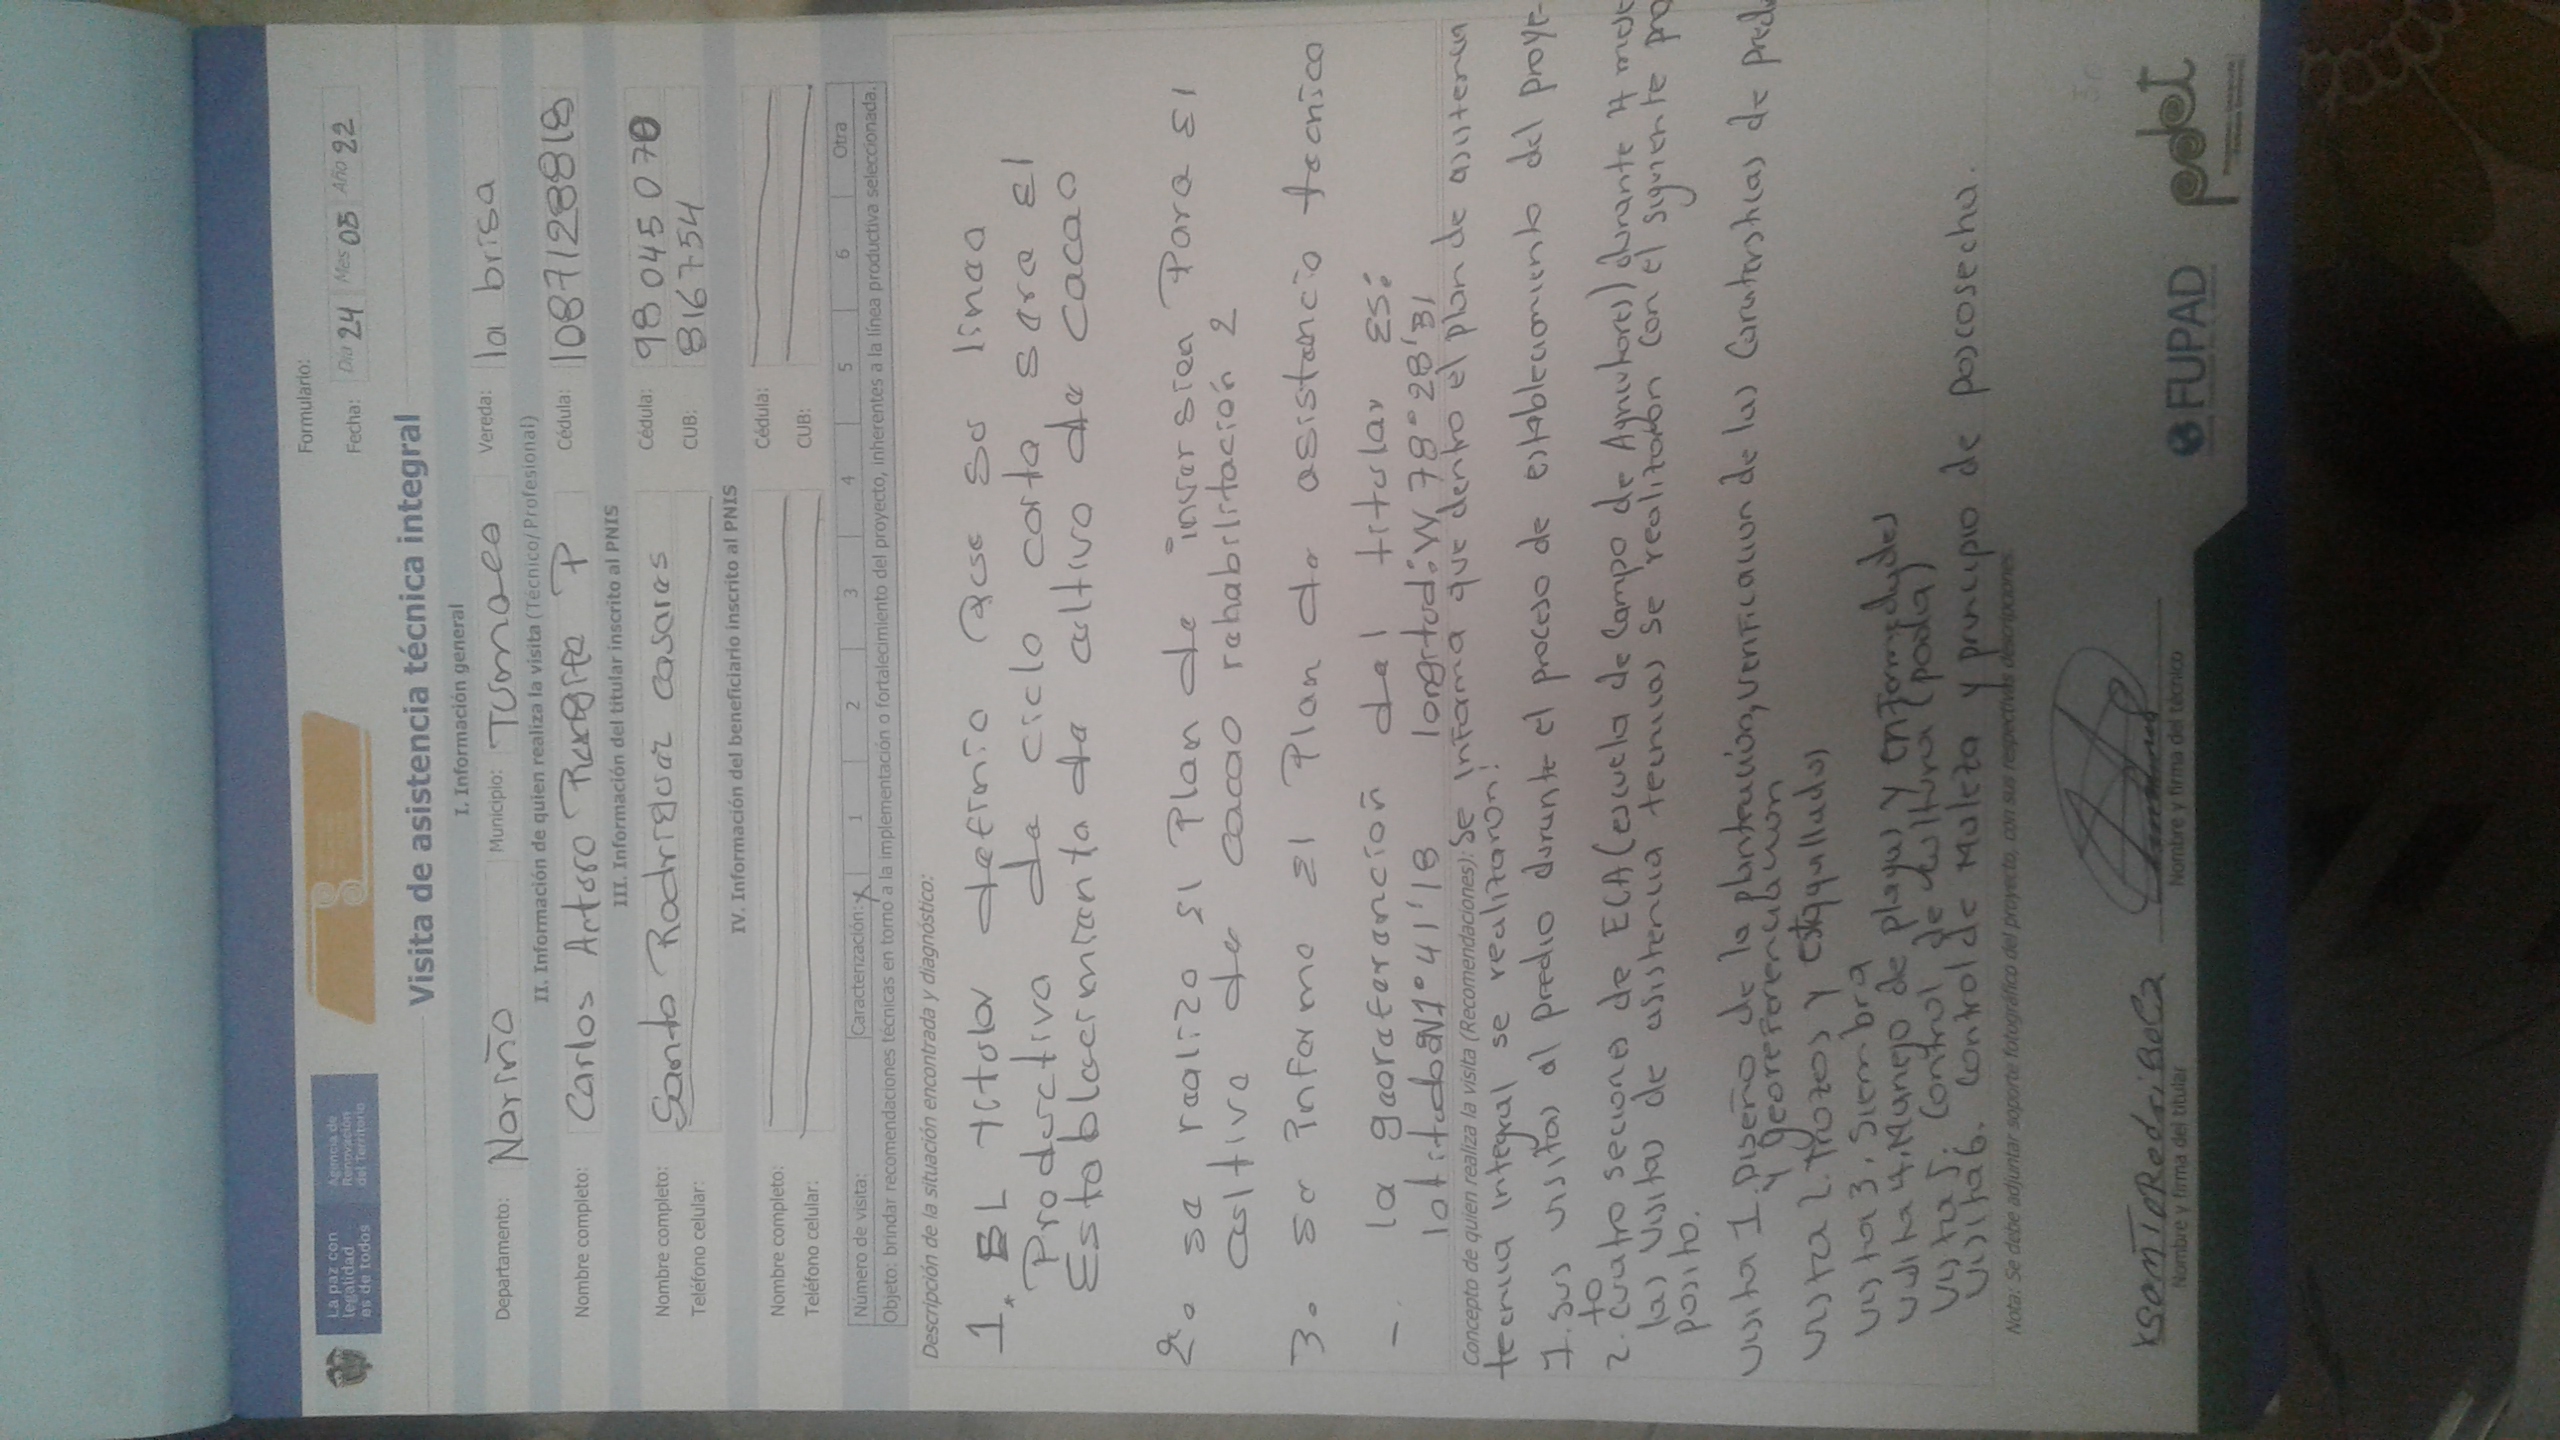 La paz con
legalidad
es de todos
Agencia de
Renovación
del Territorio
Formulario:
Fecha: Día 24 Mes 05 Año 22
Visita de asistencia técnica integral
I. Información general
Departamento: Nariño Municipio: Tumaco Vereda: la brisa
II. Información de quien realiza la visita (Técnico/Profesional)
Nombre completo: Carlos Arturo P Cédula: 1087128818
III. Información del titular inscrito al PNIS
Nombre completo: Santo Rodriguez casares Cédula: 98045070
Teléfono celular: CUB: 816754
IV. Información del beneficiario inscrito al PNIS
Nombre completo: Cédula:
Teléfono celular: CUB:
Número de visita: Caracterización: x 1 2 3 4 5 6 Otra
Objeto: brindar recomendaciones técnicas en torno a la implementación o fortalecimiento del proyecto, inherentes a la línea productiva seleccionada.
Descripción de la situación encontrada y diagnóstico:
1. EL titular definio que su linea
Productiva de ciclo corto sera El
Establecimiento de cultivo de cacao
2. se realizo El Plan de inversion Para El
cultivo de cacao rehabilitación 2
3. se informo El Plan de asistencio tecnico
-. la georeferanción del titular ES:
latitud N1°41'18 longitud: W78°28'31
Concepto de quien realiza la visita (Recomendaciones): Se informa que dentro el plan de asistencia
tecnica integral se realizaron:
1. sus visitas al predio durante el proceso de establecimiento del proyec-
to
2. cuatro secciones de ECA (escuela de campo de Agricultores) durante
las visitas de asistencia tecnicas se realizaron con el siguiente pro
posito.
visita 1. Diseño de la plantación, verificacion de las caracteristicas de
y georeferenciacion
visita 2. trozos y
visita 3. Siembra
visita 4. Manejo de plagas y enfermedades
visita 5. control de cultura (poda)
visita 6. control de Maleza y principio de poscosecha.
Nota: Se debe adjuntar soporte fotográfico del proyecto, con sus respectivas descripciones
Nombre y firma del titular
Nombre y firma del técnico
FUPAD
pdet